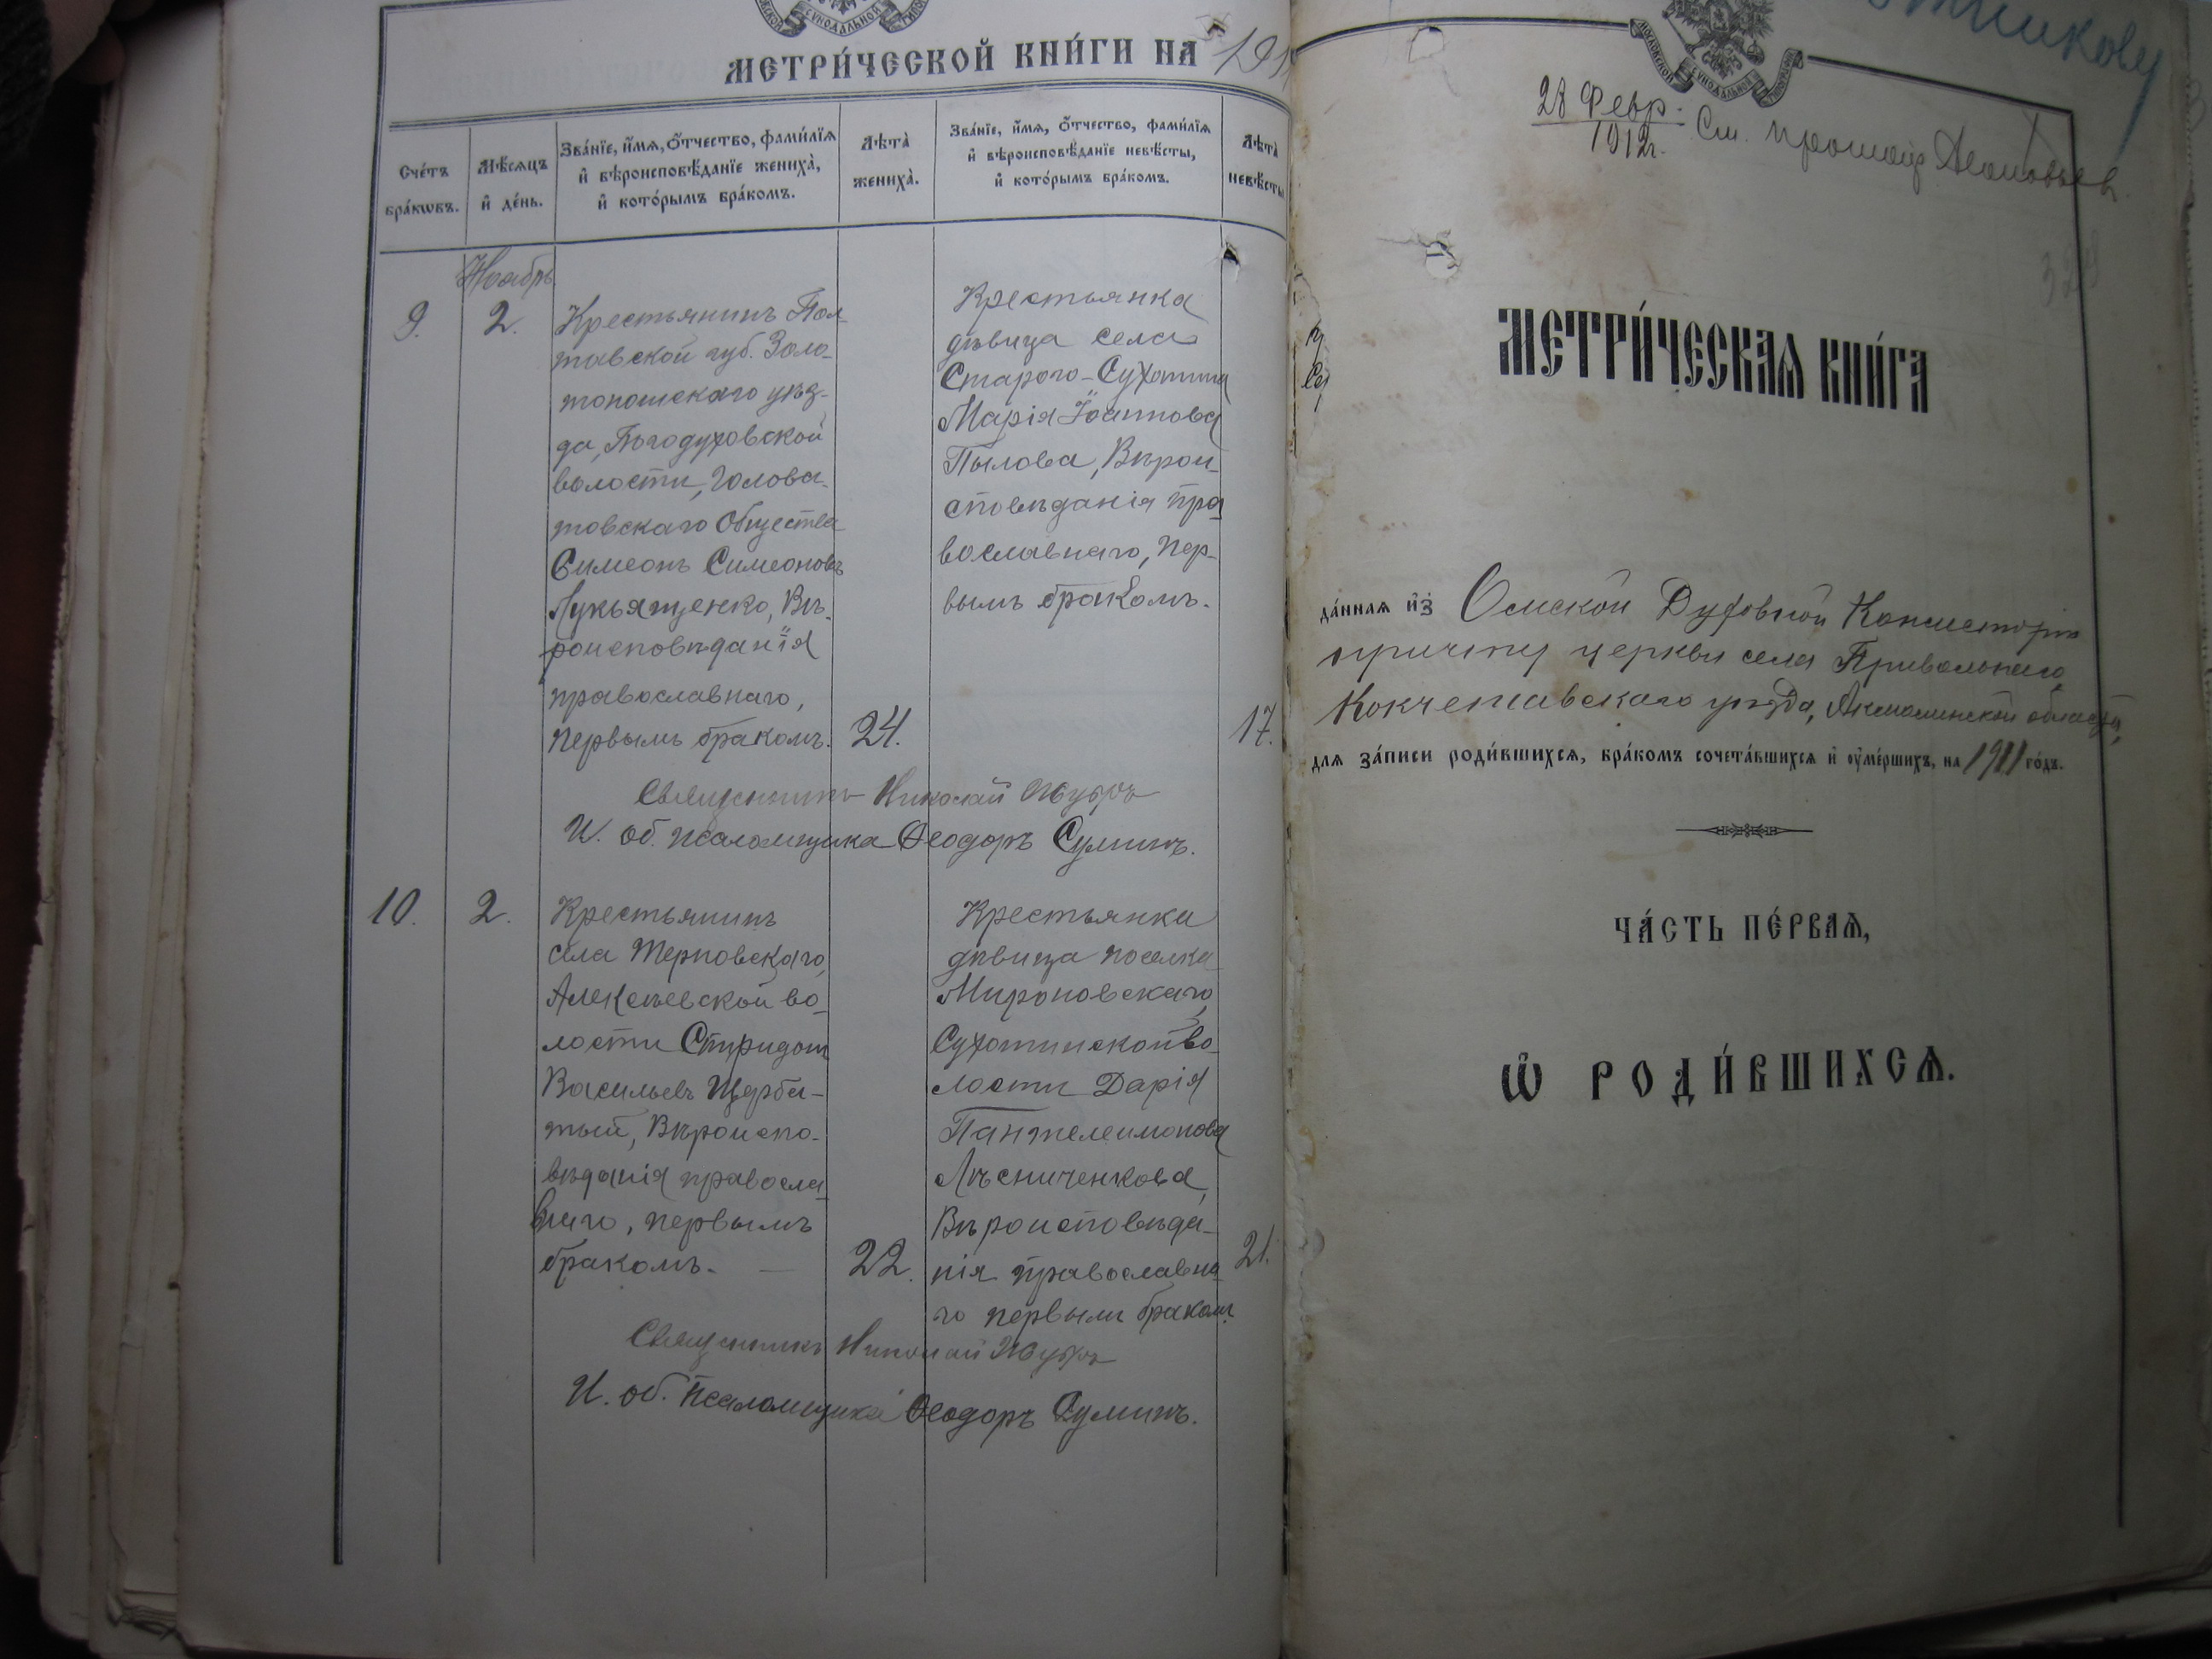 МЕТРИ́ЧЕСКОЙ КНИ́ГИ НА 191
Сче́тъ
бра́кѡвъ.
Мѣ́сѧцъ
и҆ де́нь.
Зва́нїе, и҆́мѧ, ѻ҆́тчество, фами́лїѧ
и҆ вѣроисповѣ́данїе жениха̀,
и҆ кото́рымъ бра́комъ.
Лѣ́та̀
жениха̀.
Зва́нїе, и҆́мѧ, ѻ҆́тчество, фами́лїѧ
и҆ вѣроисповѣ́данїе невѣ́сты,
и҆ кото́рымъ бра́комъ.
Лѣ́та̀
невѣ́сты
Ноябрь
9.
2.
Крестьянинъ Пол-
тавской губ. Золо-
тоношскаго уѣз-
да, Богодуховской
волости, Голова-
товскаго Общества
Симеонъ Симеоновъ
Лукьященко, Вѣ-
роисповѣданія
православнаго,
первымъ бракомъ.
24.
Крестьянка
дѣвица села
Старого-Сухотина
Марія Іоаннова
Пылова, Вѣрои-
сповѣданія пра-
вославнаго, пер-
вымъ бракомъ.
17.
Священникъ Николай
И. об. псаломщика Ѳеодоръ Суминъ.
10.
2.
Крестьянинъ
села Терновскаго,
Алексѣевской во-
лости Спиридонъ
Васильевъ Щерба-
тый, Вѣроиспо-
вѣданія правосла-
внаго, первымъ
бракомъ. —
22.
Крестьянка
дѣвица поселка
Мироновскаго,
Сухотинской во-
лости Дарія
Пантелеимонова
Лѣсниченкова,
Вѣроисповѣда-
нія православна-
го первымъ бракомъ.
21.
Священникъ Николай
И. об. Псаломщика Ѳеодоръ Суминъ.
28 Февр.
1912г.
См.
МЕТРИ́ЧЕСКАѦ КНИ́ГА
да́ннаѧ и҆з̾ Омской Духовной Консисторіи
причту церкви села Привольнаго,
Кокчетавскаго уѣзда, Акмолинской области,
длѧ за́писи роди́вшихсѧ, бра́комъ сочета́вшихсѧ и҆ ᲂу҆ме́ршихъ, на 1911 го́дъ.
ЧА́СТЬ ПЕ́РВАѦ,
Ѡ҆ РОДИ́ВШИХСѦ.